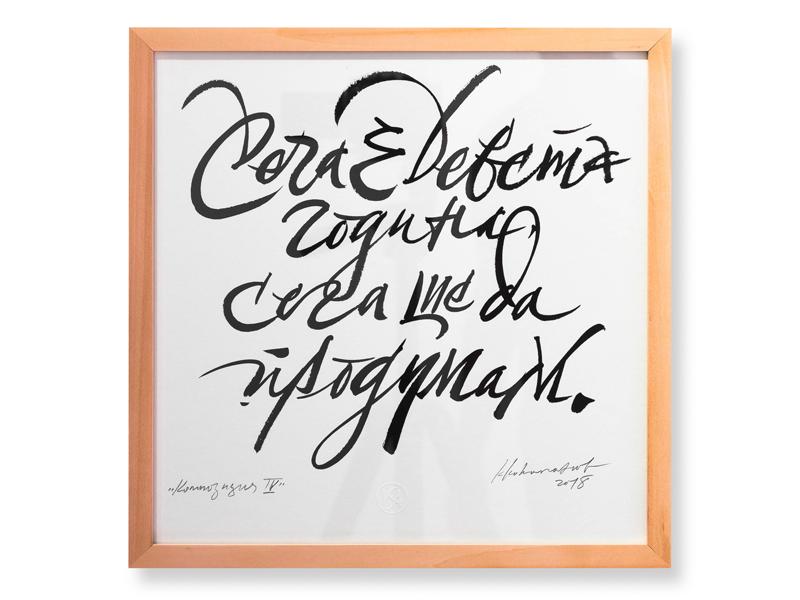 Сега е девета
година,
сега ще да
продумам.
„Композиция IV“
2018